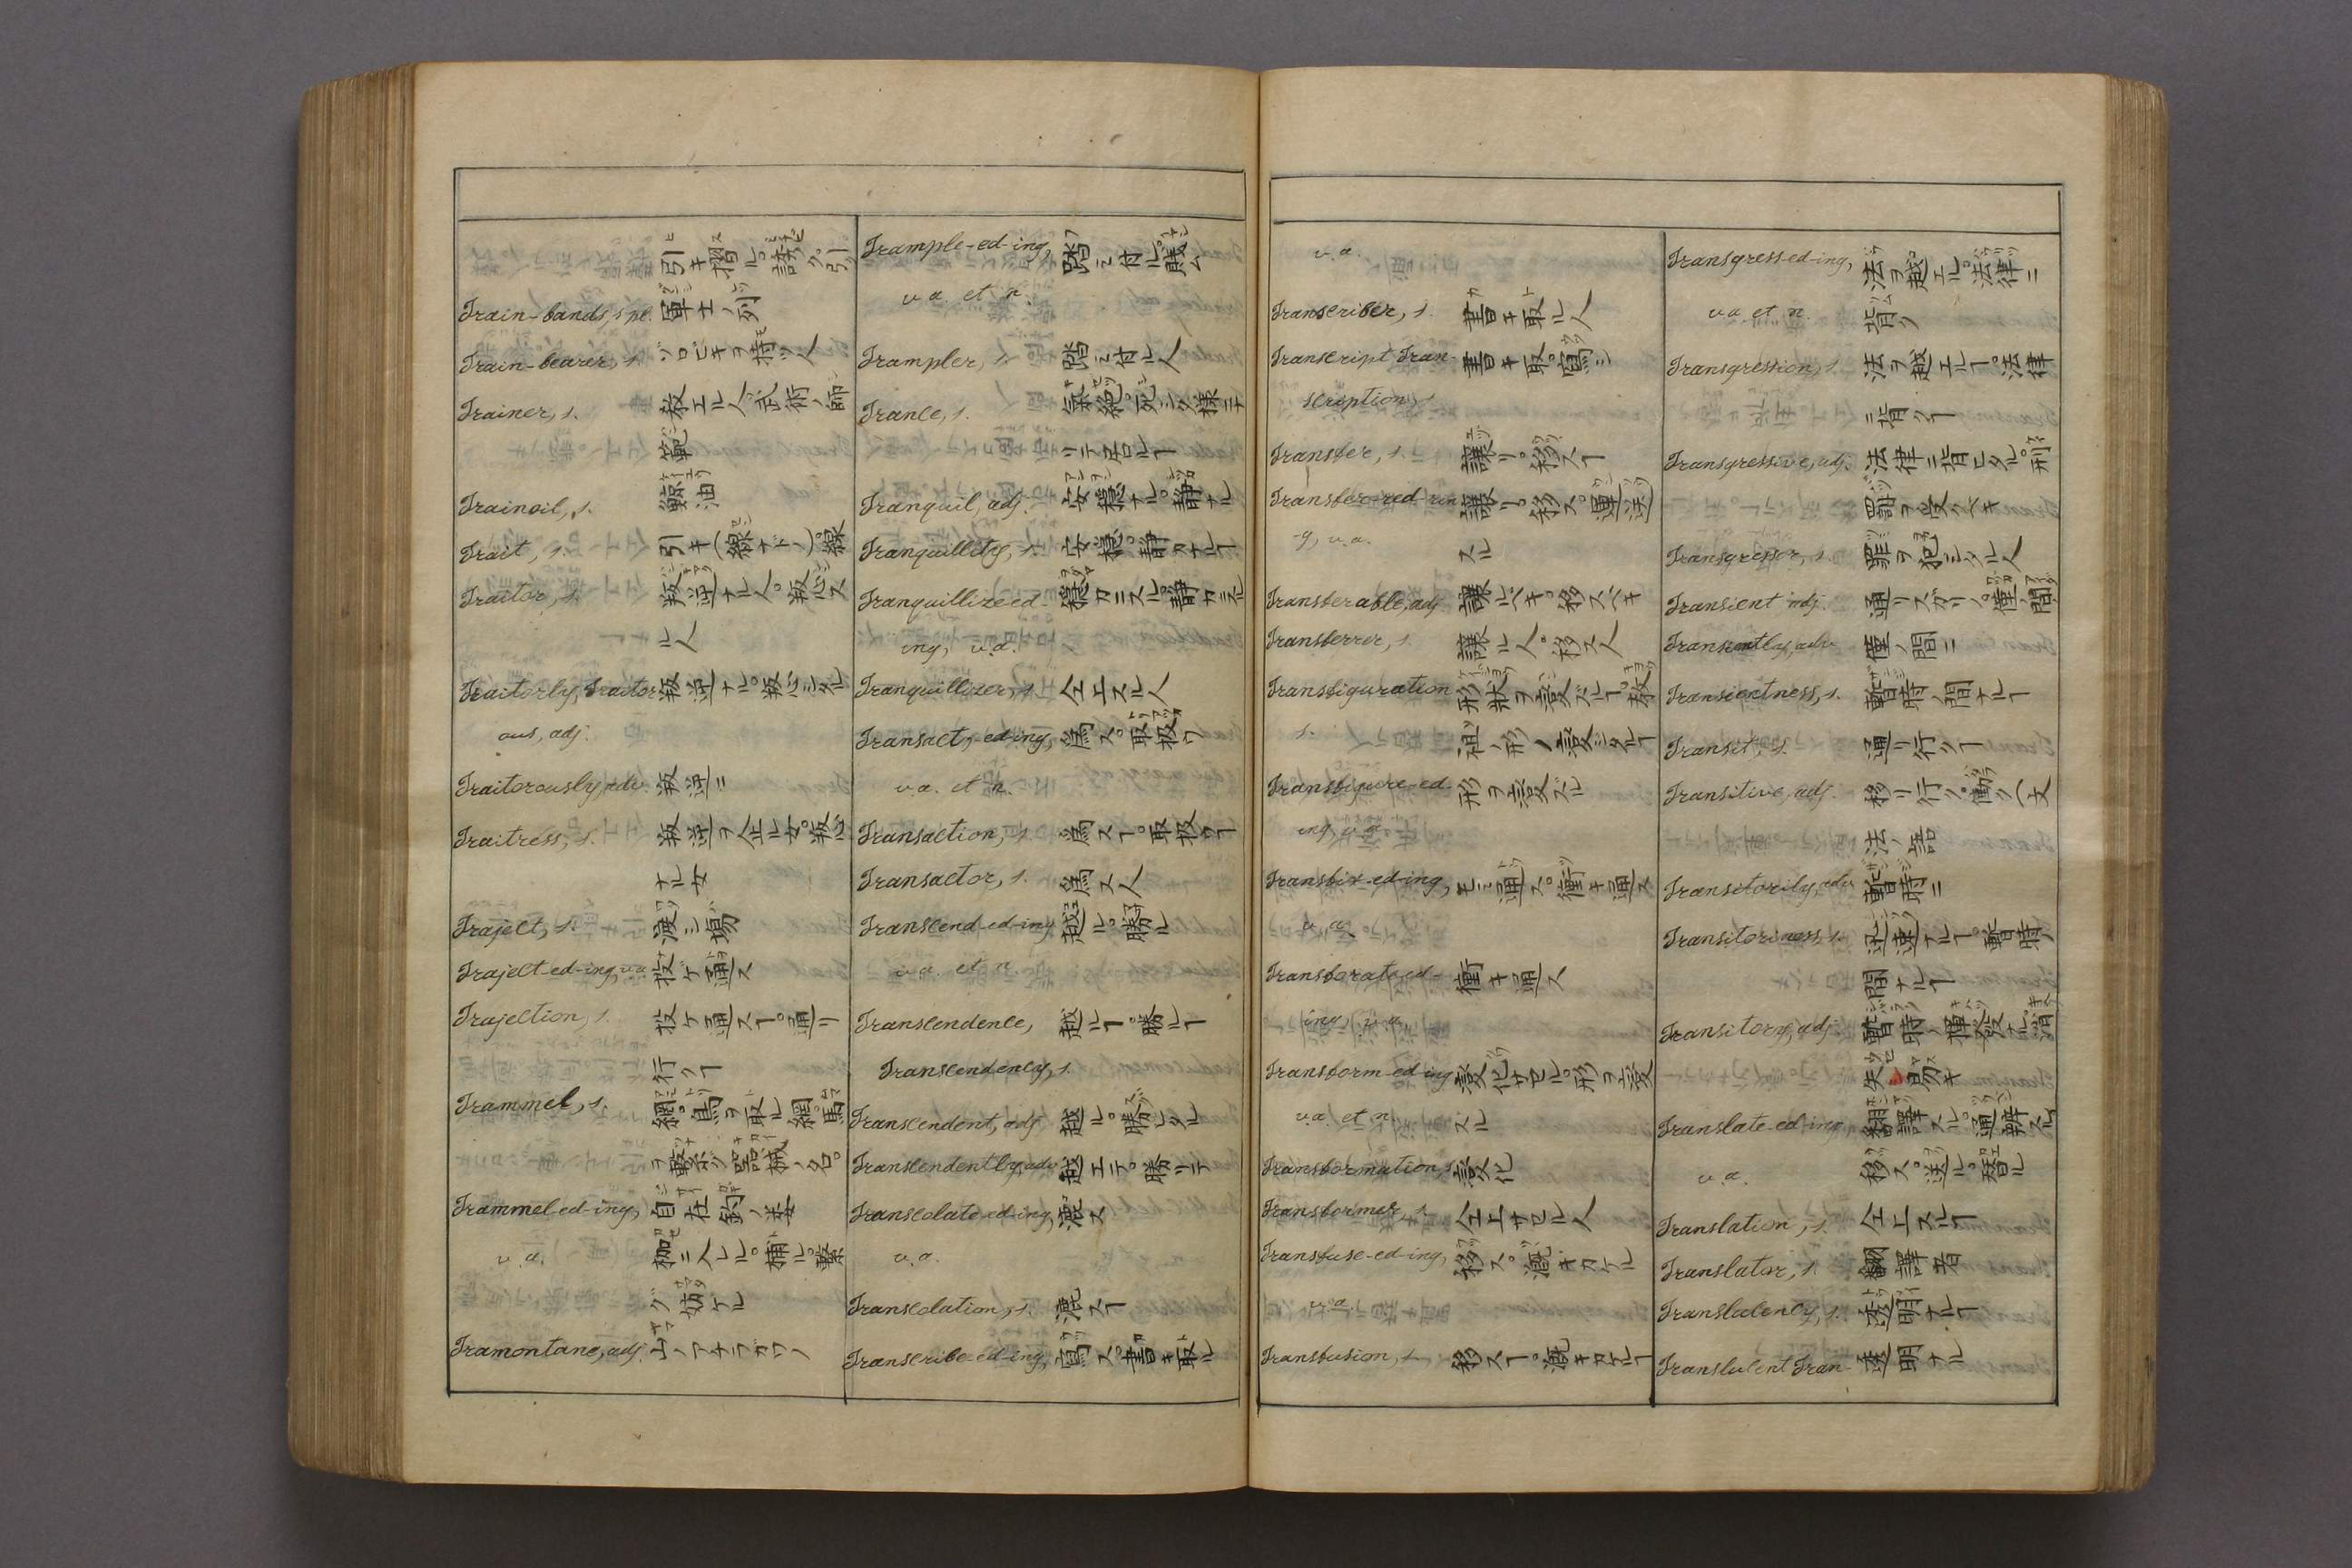 引キ摺ル。誘ク引
Train-bands, s.pl. 軍士ノ列
Train-bearer, s. ソロビキヲ持ツ人
Trainer, s. 教エル人。武術ノ師
範
Trainoil, s. 鯨油
Trait, s. 引キ(線ナドノ)。線
Traitor, s. 叛逆ナル人。叛心ス
ル人
Traitorly, Traitor- 叛逆ナル。叛心シタル
ous, adj.
Traitorously, adv. 叛逆ニ
Traitress, s. 叛逆ヲ企ル女。叛心
ナル女
Traject, s. 渡シ場
Traject-ed-ing, v.a. 投ケ通ス
Trajection, s. 投ケ通スヿ。通リ
行クヿ
Trammel, s. 網。鳥ヲ取ル網。馬
ヲ繋ホク器械ノ名。
Trammel-ed-ing, 自在鈎ノ
v.a. 枷ニ入レル。捕ル。繋
グ。妨ケル
Tramontane, adj. 山ノアチラガワノ
Trample-ed-ing, 踏ミ付ル。賎ム
v.a. et n.
Trampler, s. 踏ミ付ル人
Trance, s. 氣絶。死シタ様ニナ
リテ居ルヿ
Tranquil, adj. 安穏ナル。静ナル
Tranquillity, s. 安穏。静カナルヿ
Tranquillize-ed- 穏カニスル。静カニスル
ing, v.a.
Tranquillizer, s. 仝上スル人
Transact,-ed-ing, 為ス。取扱ウ
v.a. et n.
Transaction, s. 為スヿ。取扱ウヿ
Transactor, s. 為ス人
Transcend-ed-ing 越ル。勝ル
v.a. et n.
Transcendence, 越ルヿ。勝ルヿ
Transcendency, s.
Transcendent, adj. 越ル。勝レタル
Transcendently, adv. 越エテ。勝リテ
Transcolate-ed-ing, 漉ス
v.a.
Transcolation, s. 漉スヿ
Transcribe-ed-ing, 寫ス。書キ取ル
v.a.
Transcriber, s. 書キ取ル人
Transcript Tran- 書キ取。寫シ
scription, s.
Transfer, s. 譲リ。移スヿ
Transfer-red-rin 譲ル。移ス。運送
-g, v.a. スル
Transferable, adj. 譲ルベキ。移スベキ
Transferrer, s. 譲ル人。移ス人
Transfiguration 形状ヲ変ズルヿ。教
s. 祖ノ形ノ変シタルヿ
Transfigure-ed- 形ヲ変ズル
ing, v.a.
Transfix-ed-ing, モミ通ス。衝キ通ス
v.a.
Transforate-ed- 衝キ通ス
ing, v.a.
Transform-ed-ing 変化サセル。形ヲ変
v.a. et n. ズル
Transformation, s. 変化
Transformer, s. 仝上サセル人
Transfuse-ed-ing, 移ス。灌キカケル
v.a.
Transfusion, s. 移スヿ。灌キカケルヿ
Transgress-ed-ing, 法ヲ越エル。法律ニ
v.a. et n. 背ク
Transgression, s. 法ヲ越エルヿ。法律
ニ背クヿ
Transgressive, adj. 法律ニ背ヒタル。刑
罰ヲ受クベキ
Transgressor, s. 罪ヲ犯シタル人
Transient adj. 通リスガリノ。僅ノ間ノ
Transiently, adv. 僅ノ間ニ
Transientness, s. 暫時ノ間ナルヿ
Transit, s. 通リ行クヿ
Transitive, adj. 移リ行ク。働ク(文
法ノ語
Transitorily, adv. 暫時ニ
Transitoriness, s. 迅速ナルヿ。暫時ノ
間ナルヿ
Transitory, adj. 暫時ノ。揮発ナル。消
失易キ
Translate-ed-ing, 飜譯スル。通辨スル
v.a. 移ス。送ル。替ル
Translation, s. 仝上スルヿ
Translator, s. 飜譯者
Translucency, s. 透明ナルヿ
Translucent Tran- 透明ナル